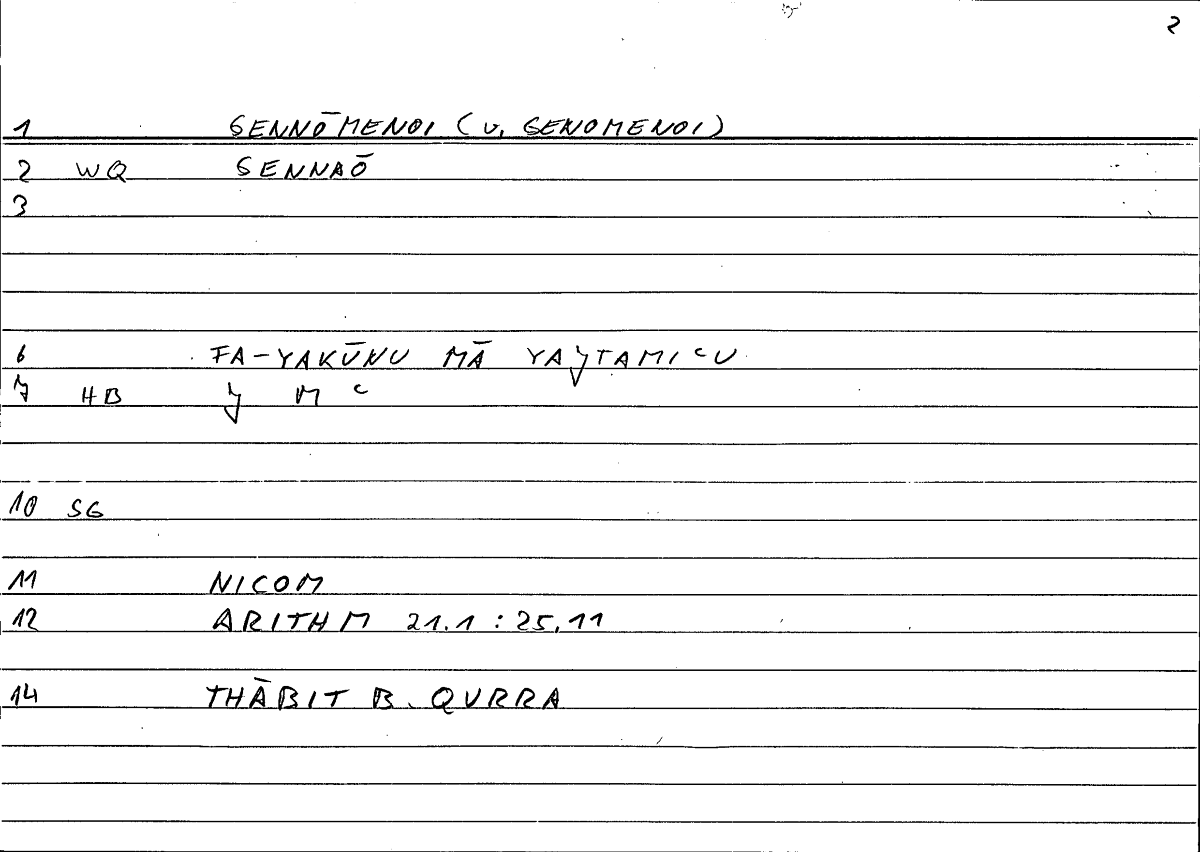 2
1 GENNŌMENOI (v. GENOMENOI)
2 WQ GENNAŌ
3
6 FA-YAKŪNU MĀ YAJTAMIʿU
7 HB J M ʿ
10 SG
11 NICOM
12 ARITHM 21.1 : 25,11
14 THĀBIT B. QURRA